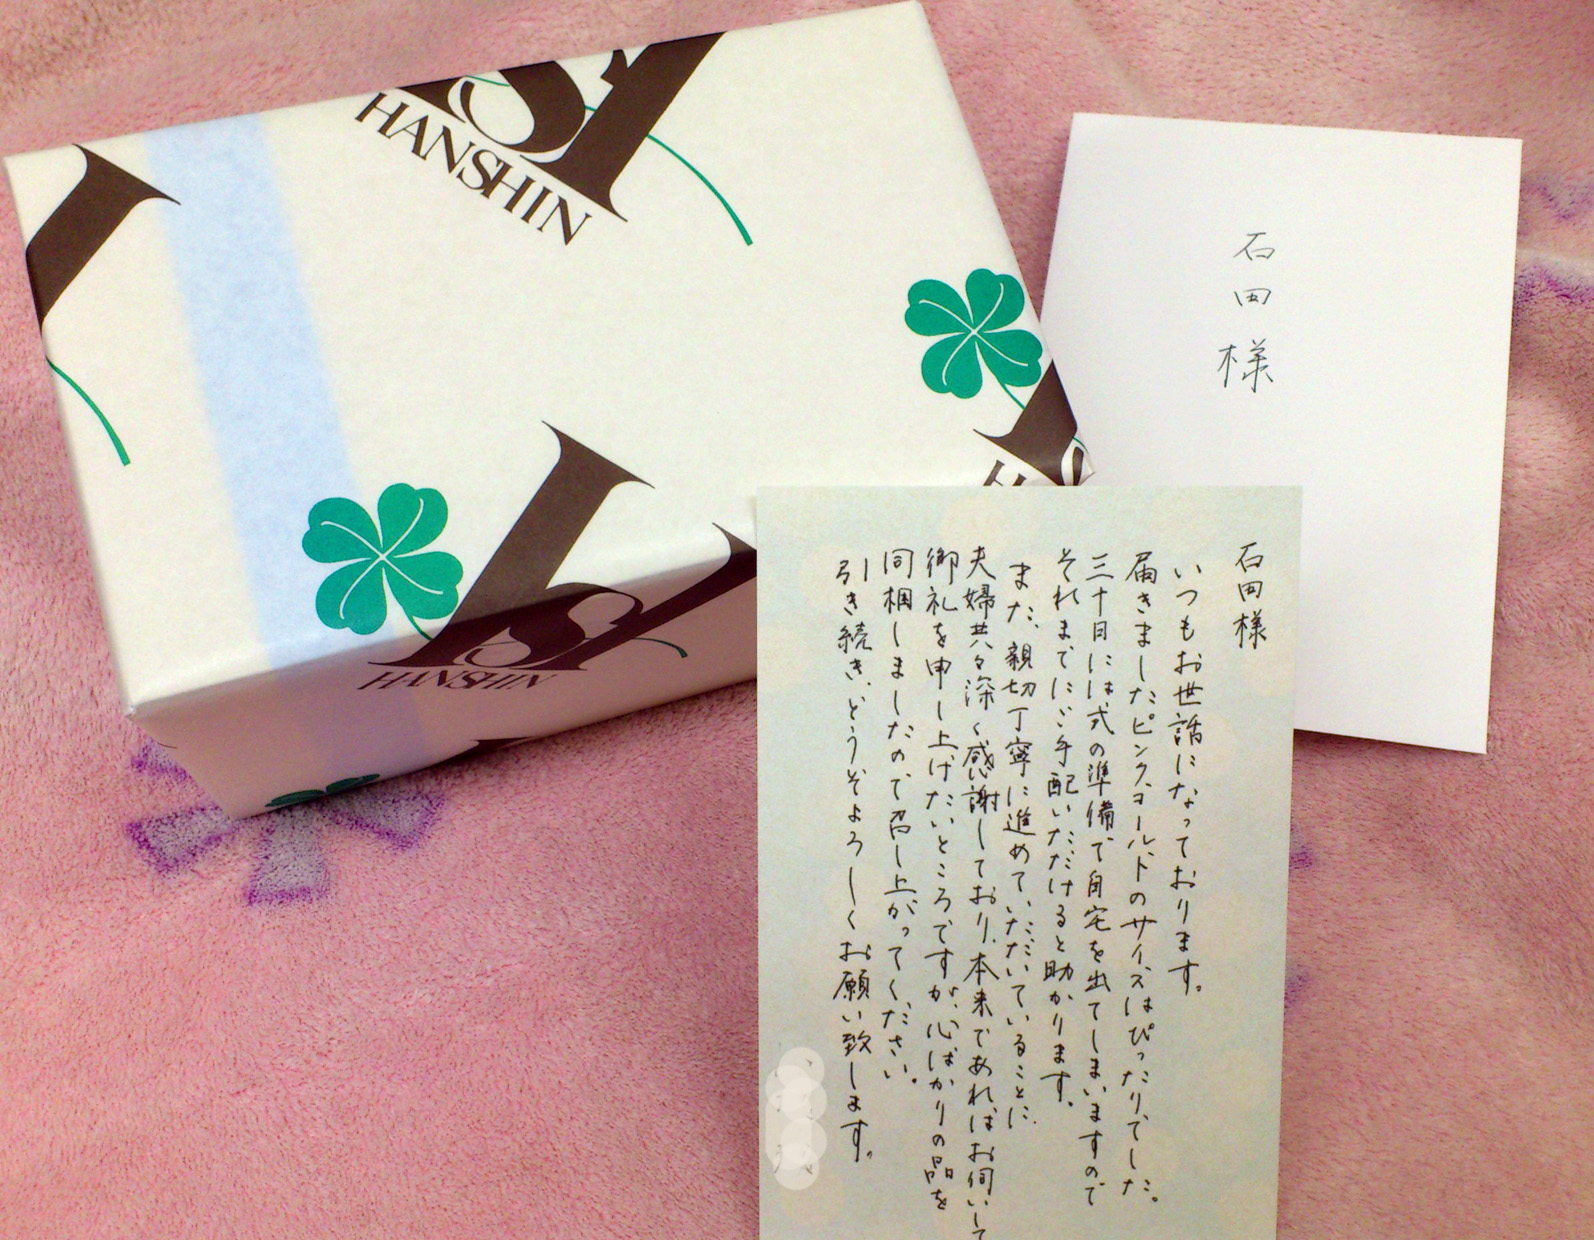 HANSHIN
HANSHIN
石田様
石田様
いつもお世話になっております。
届きましたピンクゴールドのサイズはぴったりでした。
三十日には式の準備で自宅を出てしまいますので
それまでにご手配いただけると助かります。
また、親切丁寧に進めていただいていることに
夫婦共々深く感謝しており、本来であればお伺いして
御礼を申し上げたいところですが、心ばかりの品を
同梱しましたので召し上がってください。
引き続き、どうぞよろしくお願い致します。